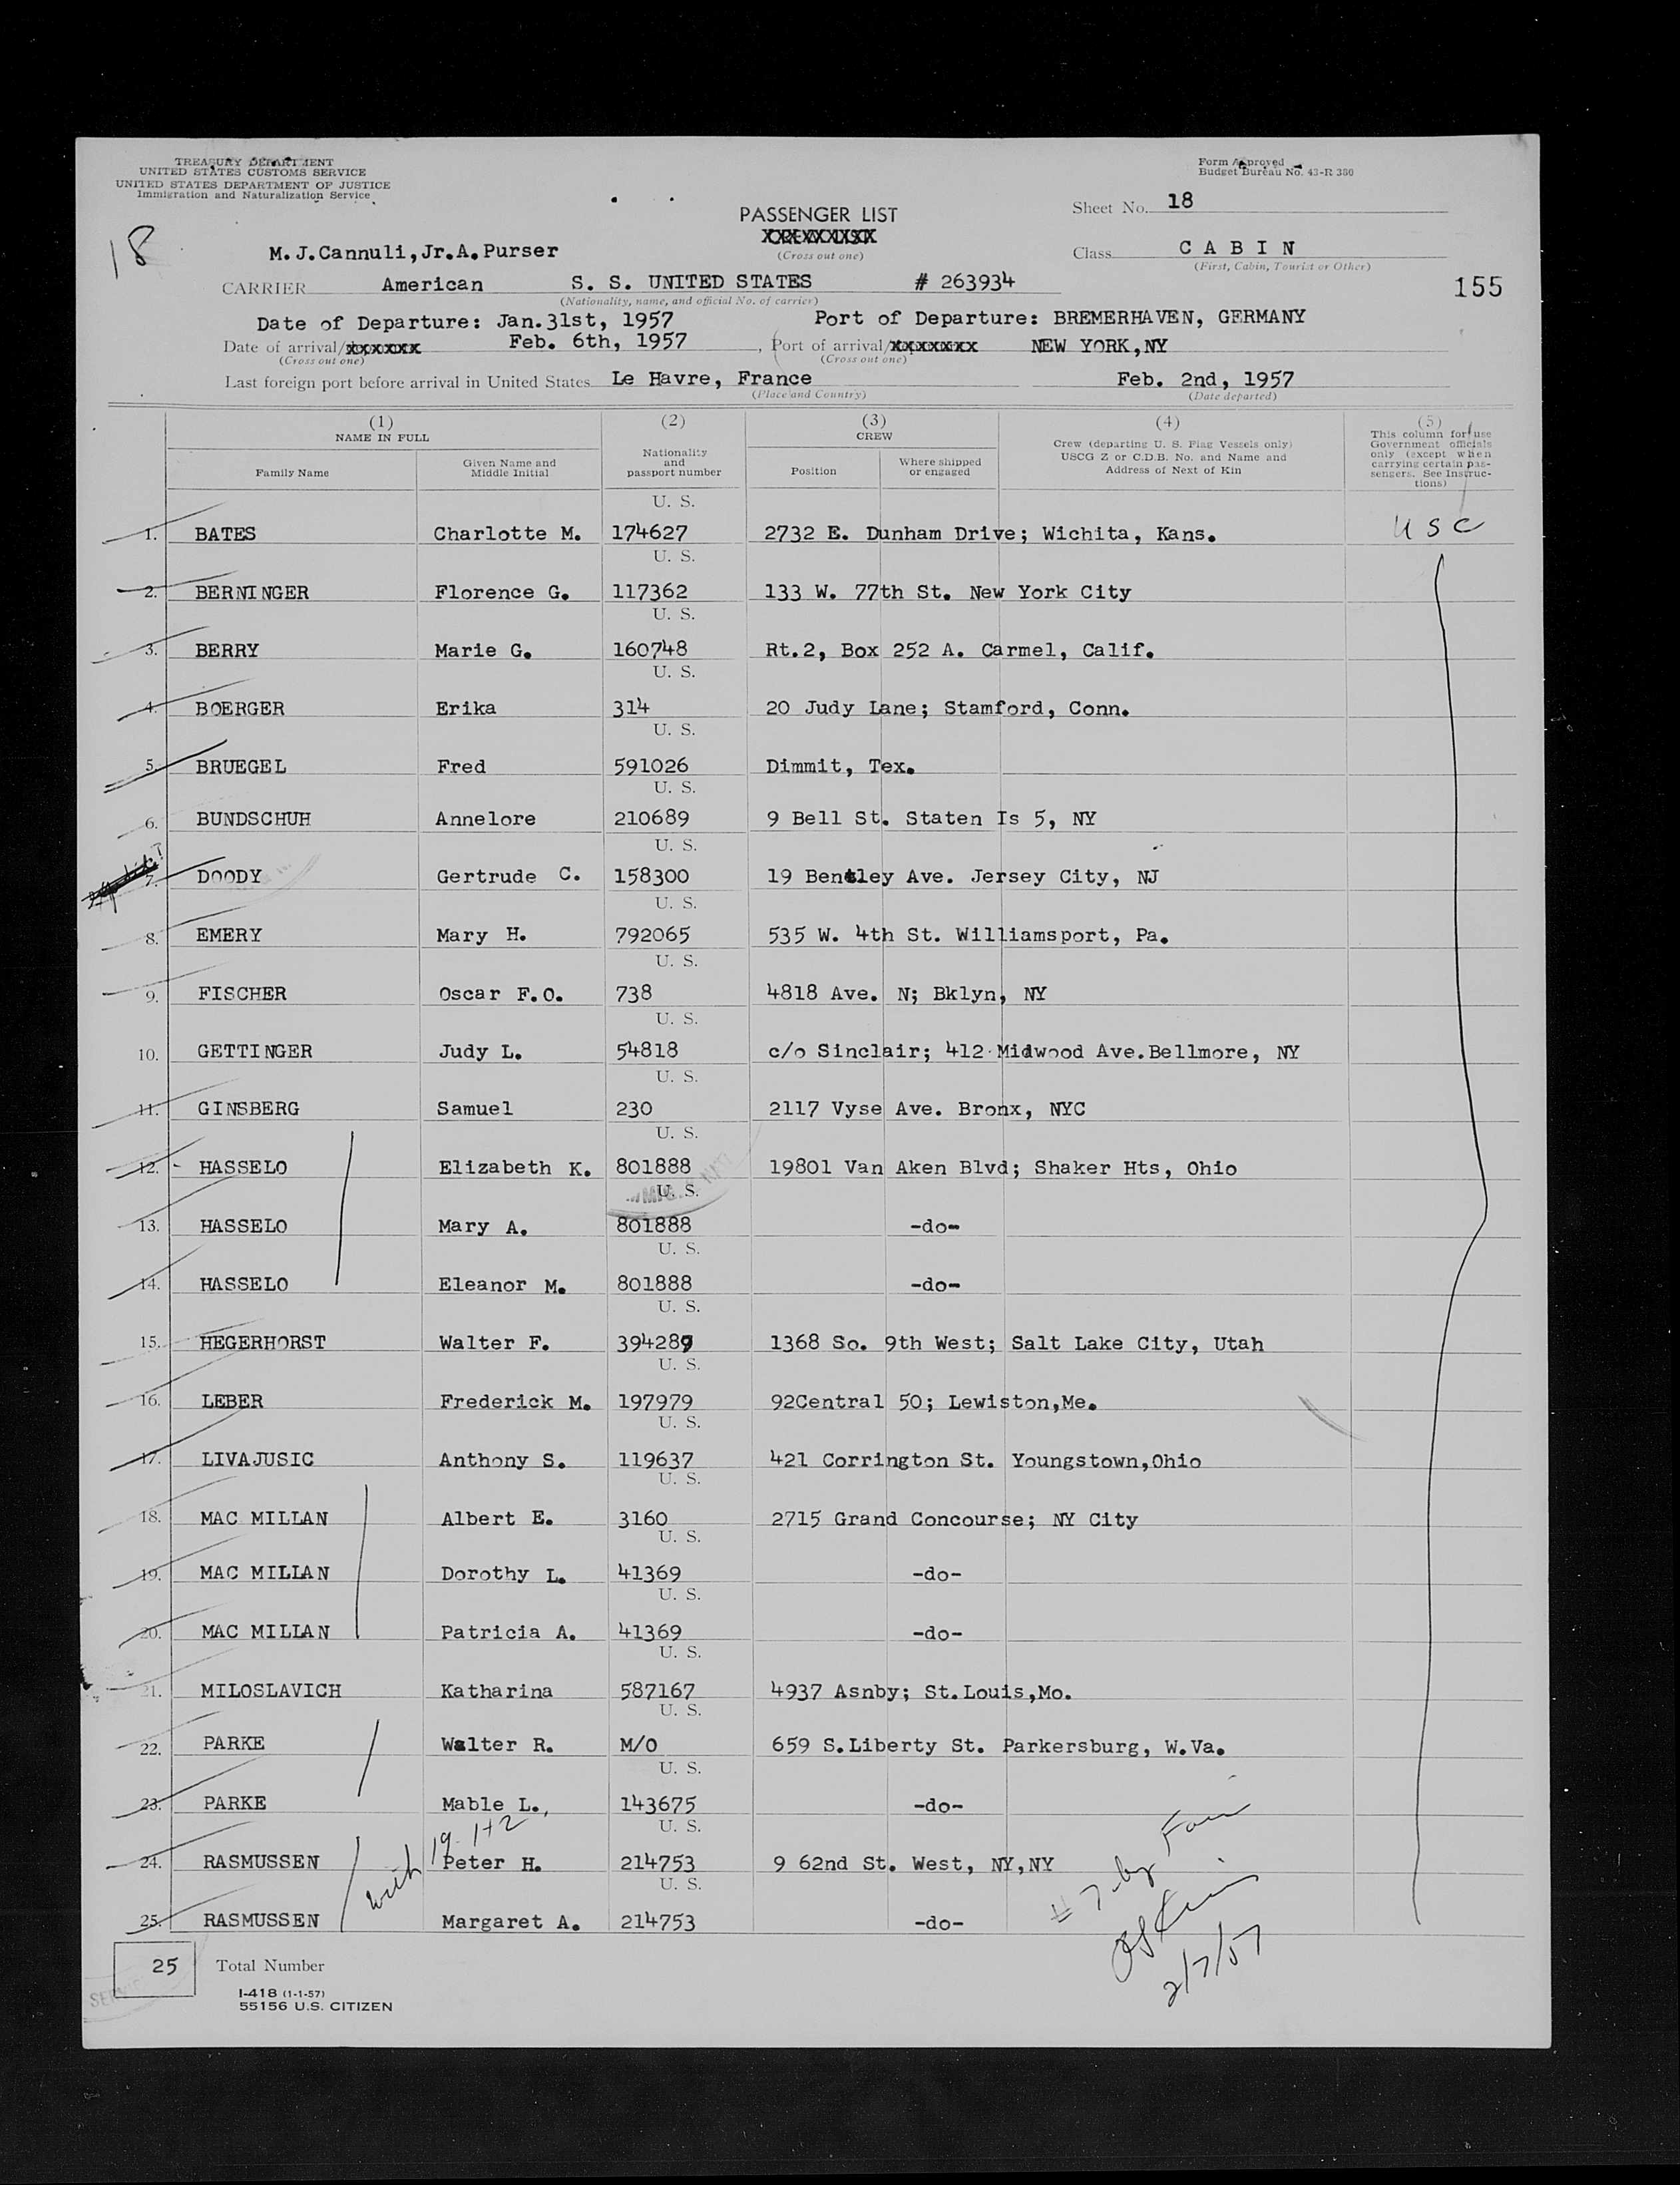 TREASURY DEPARTMENT
UNITED STATES CUSTOMS SERVICE
UNITED STATES DEPARTMENT OF JUSTICE
Immigration and Naturalization Service
Form Approved
Budget Bureau No. 43-R 380
18
PASSENGER LIST
Sheet No. 18
(Cross out one)
M.J.Cannuli,Jr.A.Purser
Class CABIN
(First, Cabin, Tourist or Other)
CARRIER American S. S. UNITED STATES # 263934
(Nationality, name, and official No. of carrier)
155
Date of Departure: Jan.31st, 1957 Port of Departure: BREMERHAVEN, GERMANY
Date of arrival/xxxxxxx Feb. 6th, 1957, Port of arrival/xxxxxxx NEW YORK,NY
(Cross out one) (Cross out one)
Last foreign port before arrival in United States Le Havre, France Feb. 2nd, 1957
(Place and Country) (Date departed)
(1) (2) (3) (4) (5)
NAME IN FULL Nationality and passport number CREW Crew (departing U. S. Flag Vessels only) USCG Z or C.D.B. No. and Name and Address of Next of Kin This column for use Government officials only (except when carrying certain passengers. See Instructions)
Family Name Given Name and Middle Initial Position Where shipped or engaged
U. S.
1. BATES Charlotte M. 174627 2732 E. Dunham Drive; Wichita, Kans. USC
U. S.
2. BERNINGER Florence G. 117362 133 W. 77th St. New York City
U. S.
3. BERRY Marie G. 160748 Rt.2, Box 252 A. Carmel, Calif.
U. S.
4. BOERGER Erika 314 20 Judy Lane; Stamford, Conn.
U. S.
5. BRUEGEL Fred 591026 Dimmit, Tex.
U. S.
6. BUNDSCHUH Annelore 210689 9 Bell St. Staten Is 5, NY
U. S.
7. DOODY Gertrude C. 158300 19 Bentley Ave. Jersey City, NJ
U. S.
8. EMERY Mary H. 792065 535 W. 4th St. Williamsport, Pa.
U. S.
9. FISCHER Oscar F.O. 738 4818 Ave. N; Bklyn, NY
U. S.
10. GETTINGER Judy L. 54818 c/o Sinclair; 412 Midwood Ave.Bellmore, NY
U. S.
11. GINSBERG Samuel 230 2117 Vyse Ave. Bronx, NYC
U. S.
12. HASSELO Elizabeth K. 801888 19801 Van Aken Blvd; Shaker Hts, Ohio
U. S.
13. HASSELO Mary A. 801888 -do-
U. S.
14. HASSELO Eleanor M. 801888 -do-
U. S.
15. HEGERHORST Walter F. 394289 1368 So. 9th West; Salt Lake City, Utah
U. S.
16. LEBER Frederick M. 197979 92Central 50; Lewiston,Me.
U. S.
17. LIVAJUSIC Anthony S. 119637 421 Corrington St. Youngstown,Ohio
U. S.
18. MAC MILLAN Albert E. 3160 2715 Grand Concourse; NY City
U. S.
19. MAC MILLAN Dorothy L. 41369 -do-
U. S.
20. MAC MILLAN Patricia A. 41369 -do-
U. S.
21. MILOSLAVICH Katharina 587167 4937 Asnby; St.Louis,Mo.
U. S.
22. PARKE Walter R. M/O 659 S.Liberty St. Parkersburg, W.Va.
U. S.
23. PARKE Mable L., 143675 -do-
U. S.
with 19 1+2
24. RASMUSSEN Peter H. 214753 9 62nd St. West, NY,NY
U. S.
25. RASMUSSEN Margaret A. 214753 -do-
# 7 by
2/7/57
25 Total Number
I-418 (1-1-57)
55156 U.S. CITIZEN